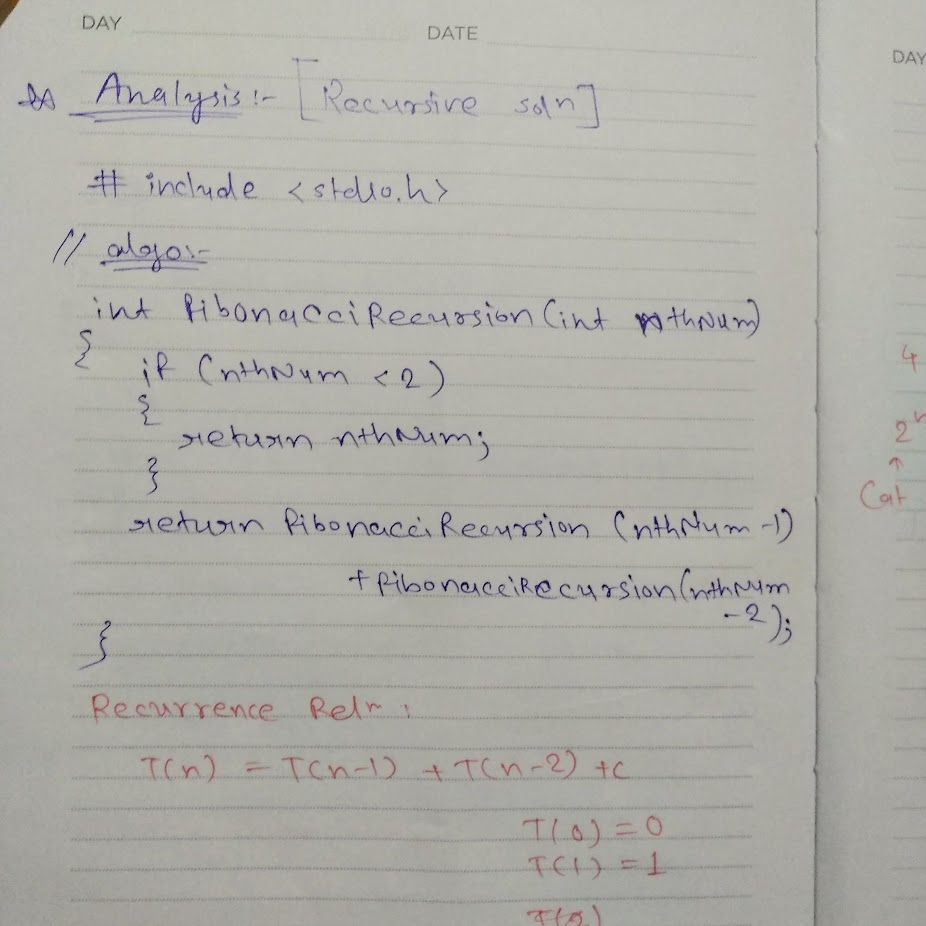 DAY
DATE
Analysis:- [Recursive soln]
# include <stdio.h>
// algo:-
int fibonacciRecursion (int nthNum)
{
if (nthNum < 2)
{
return nthNum;
}
return fibonacciRecursion (nthNum -1)
+ fibonacciRecursion (nthNum
-2);
}
Recurrence Reln:
T(n) = T(n-1) + T(n-2) + c
T(0) = 0
T(1) = 1
T(2)
DAY
4
2^n
↑